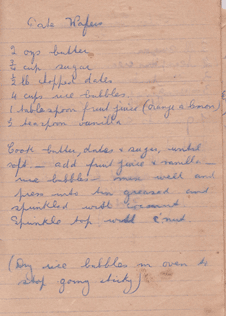 Date Wafers
ozs butter
cup sugar
lb chopped dates
4 cups rice bubbles
1 tablespoon fruit juice (orange or lemon)
½ teaspoon vanilla
Cook butter, dates & sugar, until
soft — add fruit juice & vanilla —
rice bubbles — mix well and
press into tin greased and
sprinkled with coconut.
Sprinkle top with c'nut
(Dry rice bubbles in oven to
stop going sturdy)